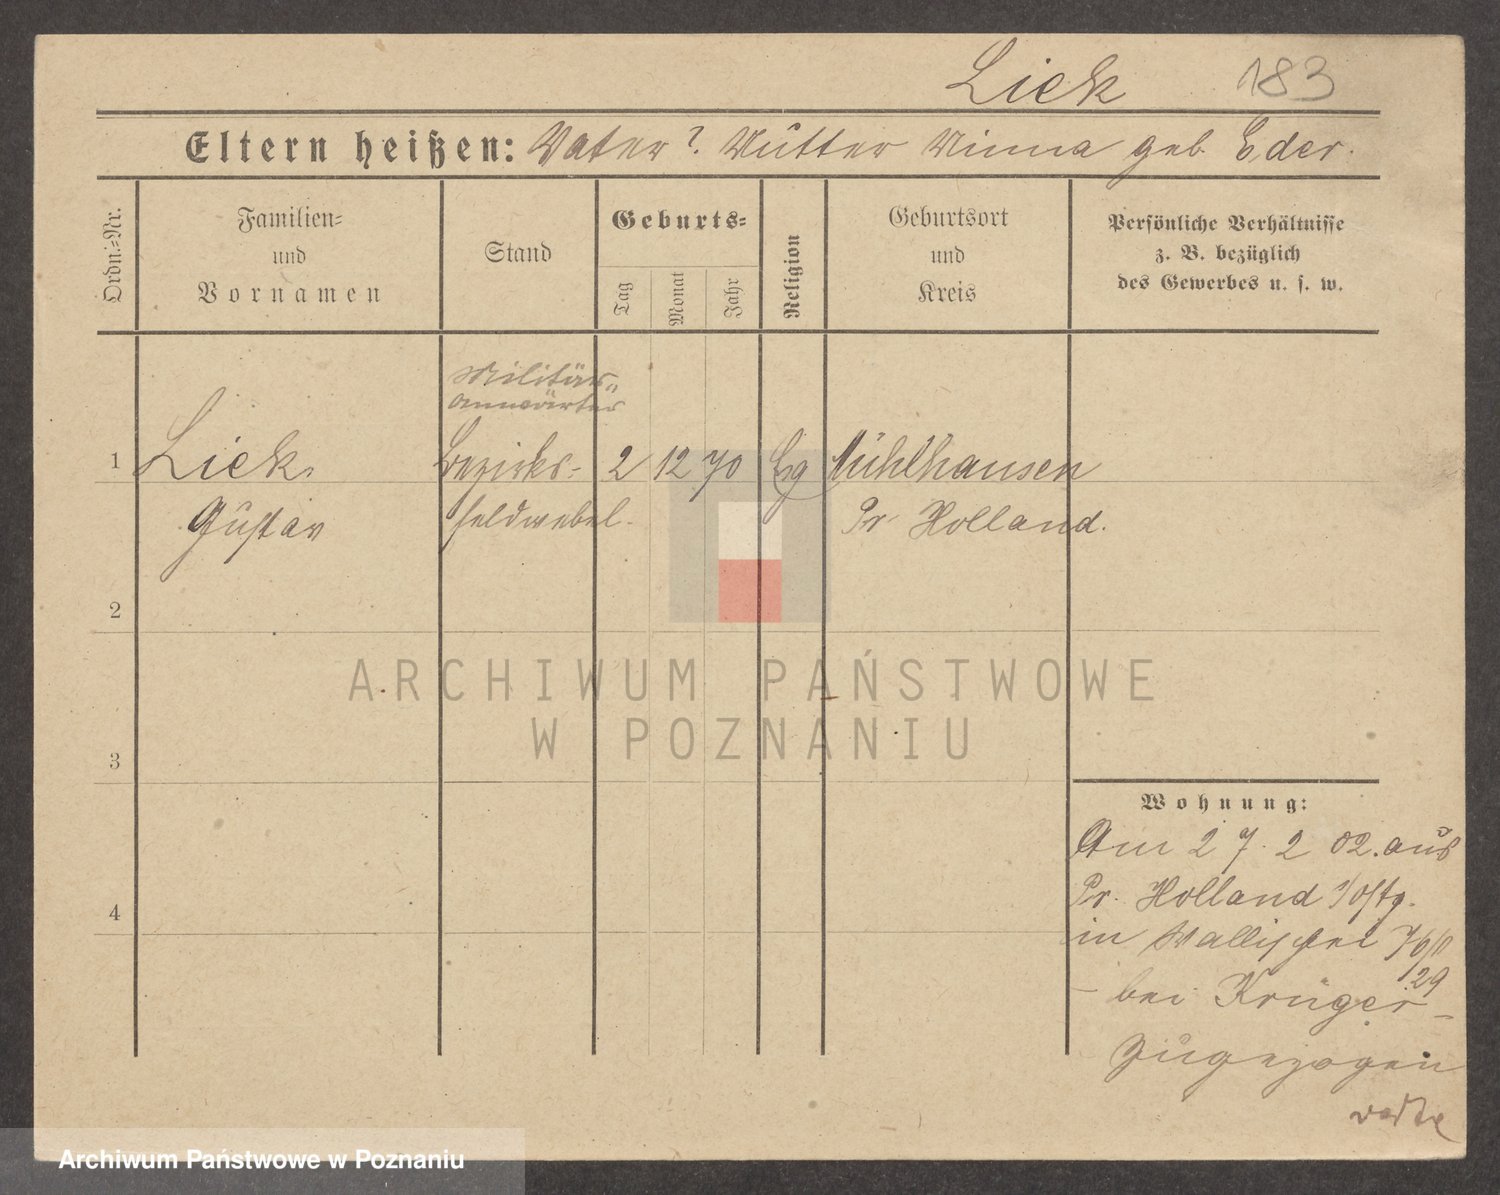 Liek 183
Eltern heißen: Vater? Mutter Minna geb. Eder.
Ordn.=Nr.
Familien=
und
Vornamen
Stand
Geburts=
Tag
Monat
Jahr
Religion
Geburtsort
und
Kreis
Persönliche Verhältnisse
z. B. bezüglich
des Gewerbes u. s. w.
Militär-
anwärter
1 Liek, Bezirks- 2 12 70 Eg Mühlhausen
Gustav feldwebel. Pr. Holland.
2
3
4
Wohnung:
Am 27. 2 02. aus
Pr. Holland
in Wallischei
29
- bei Krüger -
zugezogen
ARCHIWUM PAŃSTWOWE
W POZNANIU
Archiwum Państwowe w Poznaniu